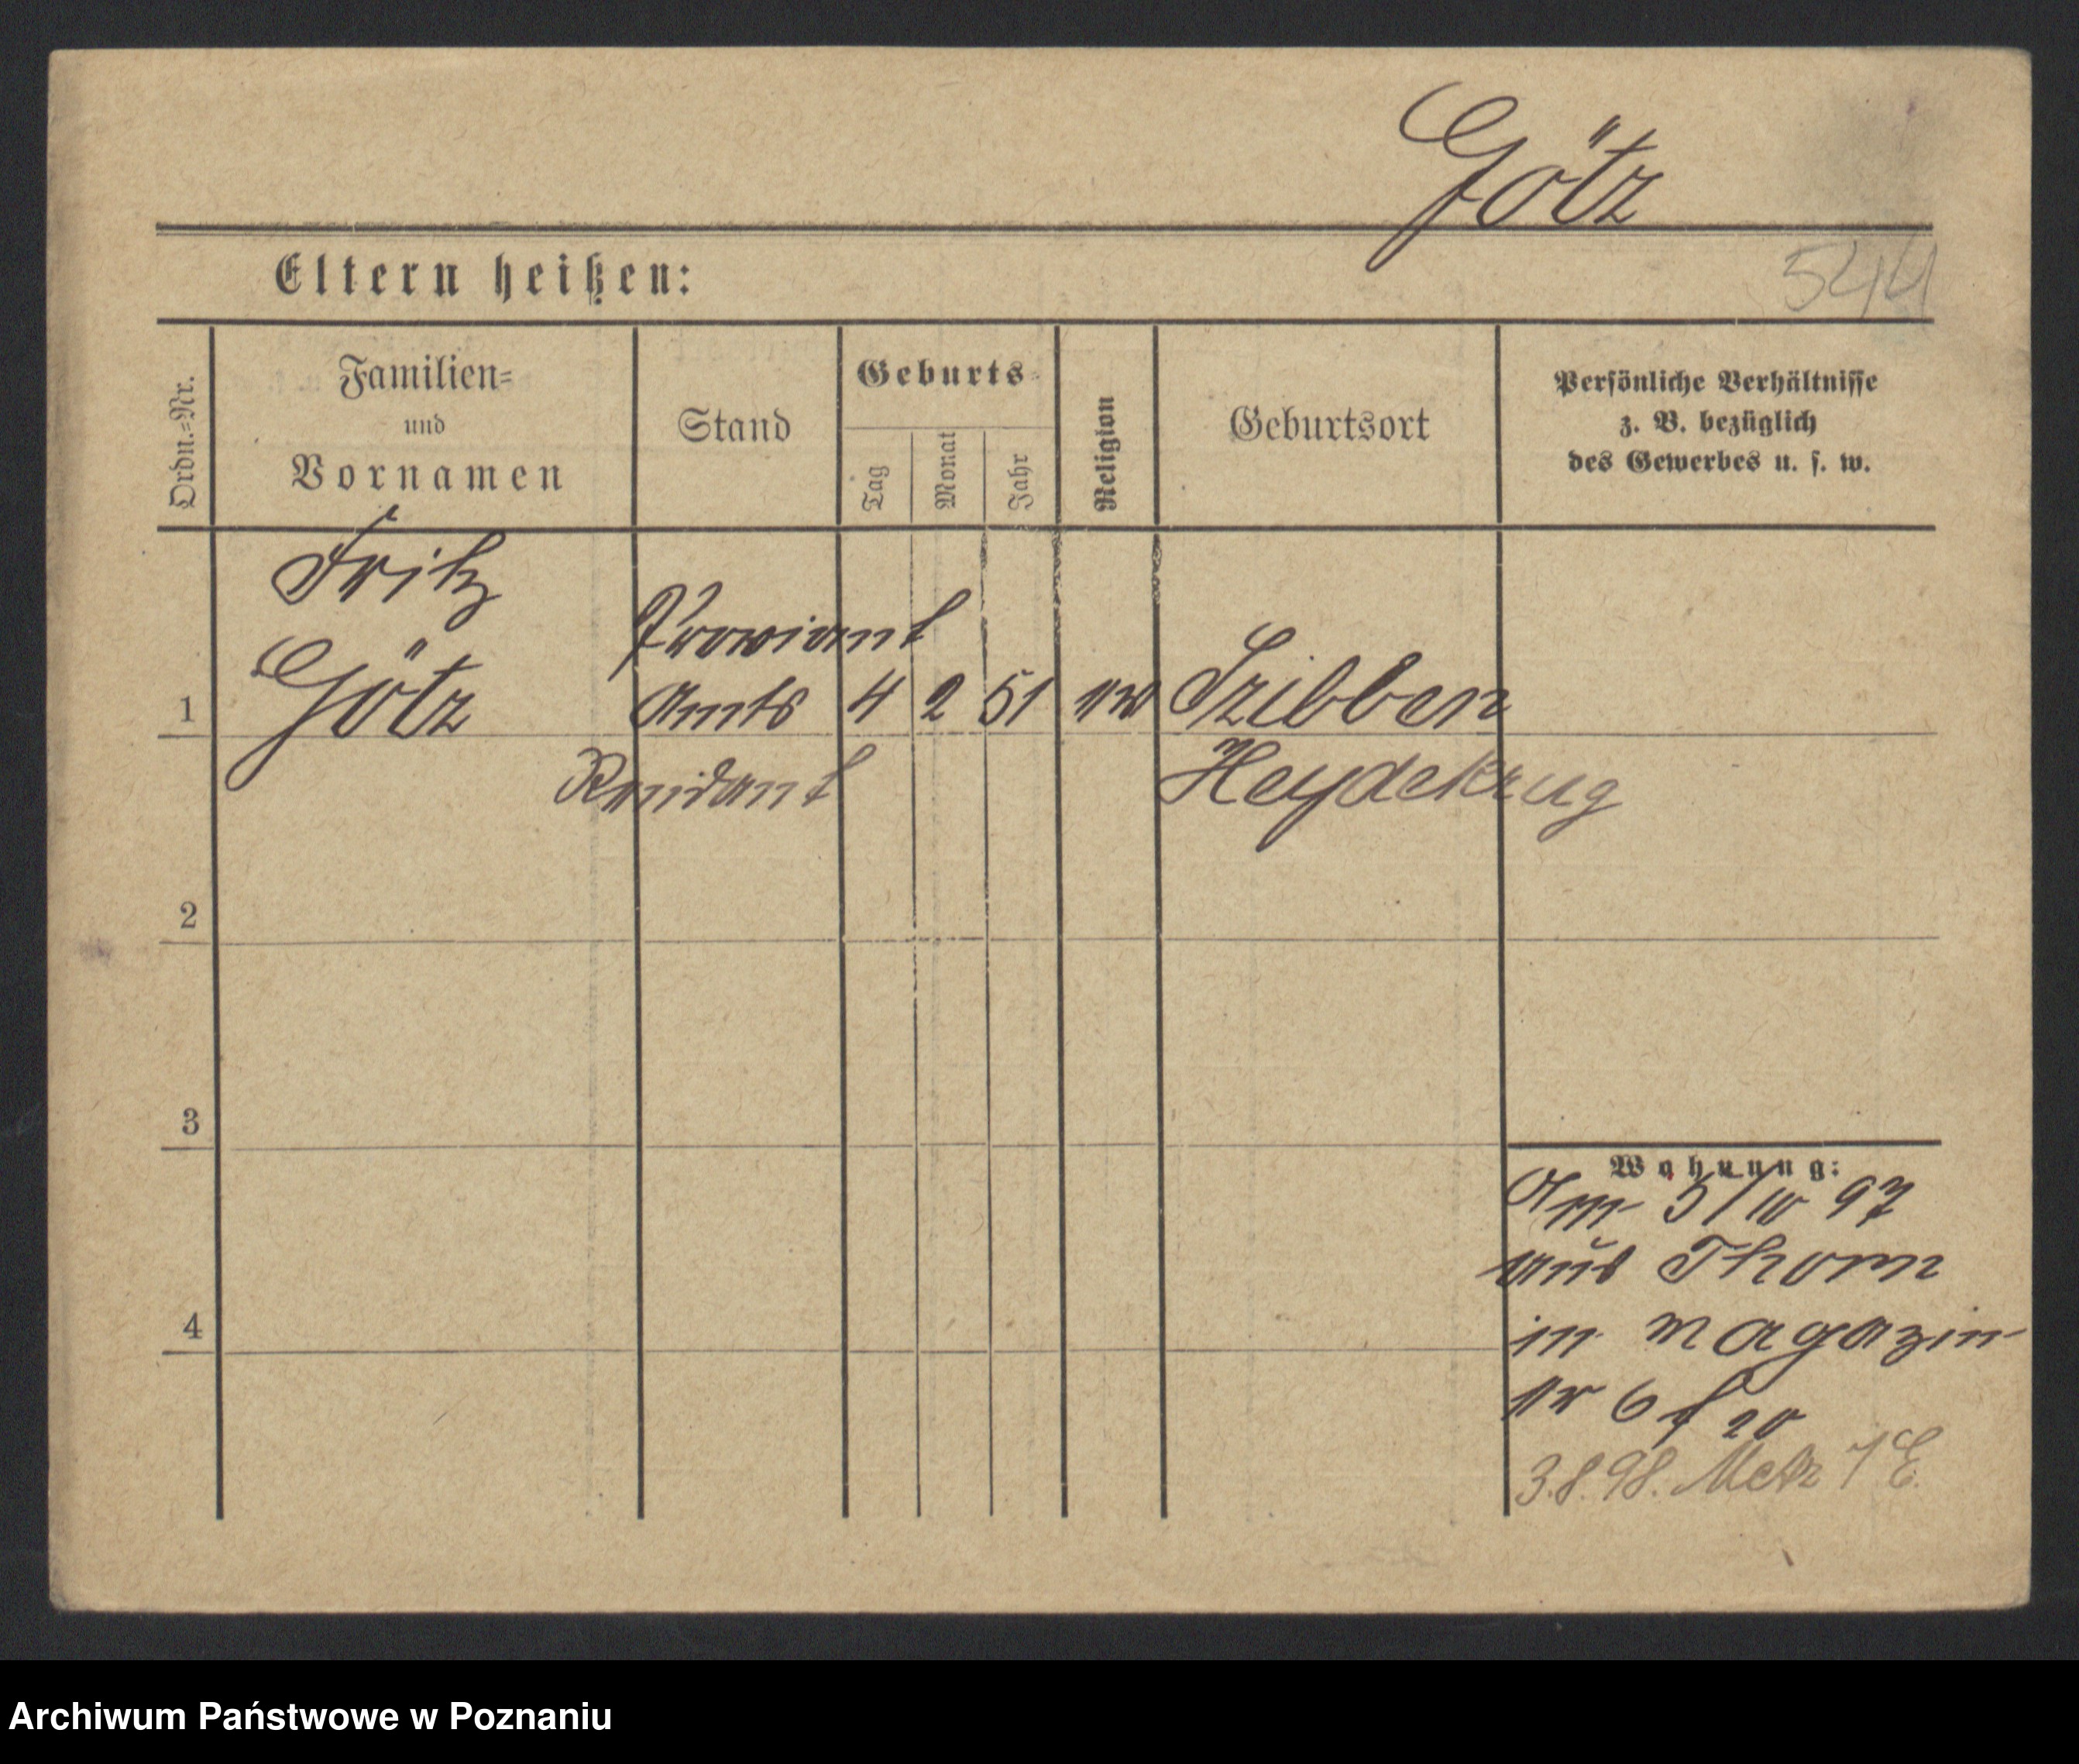 Götz
Eltern heißen:
544
Ordn.=Nr.
Familien=
und
Vornamen
Stand
Geburts=
Tag
Monat
Jahr
Religion
Geburtsort
Persönliche Verhältnisse
z. B. bezüglich
des Gewerbes u. s. w.
Fritz
Proviant
1 Götz Amts 4 2 51 ev Szibben
Rendant Heydekrug
2
3
4
Wohnung:
Am 5/IV 97
aus Thorn
in Magazin
nr 6 f 20
3.8.98. Metz
Archiwum Państwowe w Poznaniu